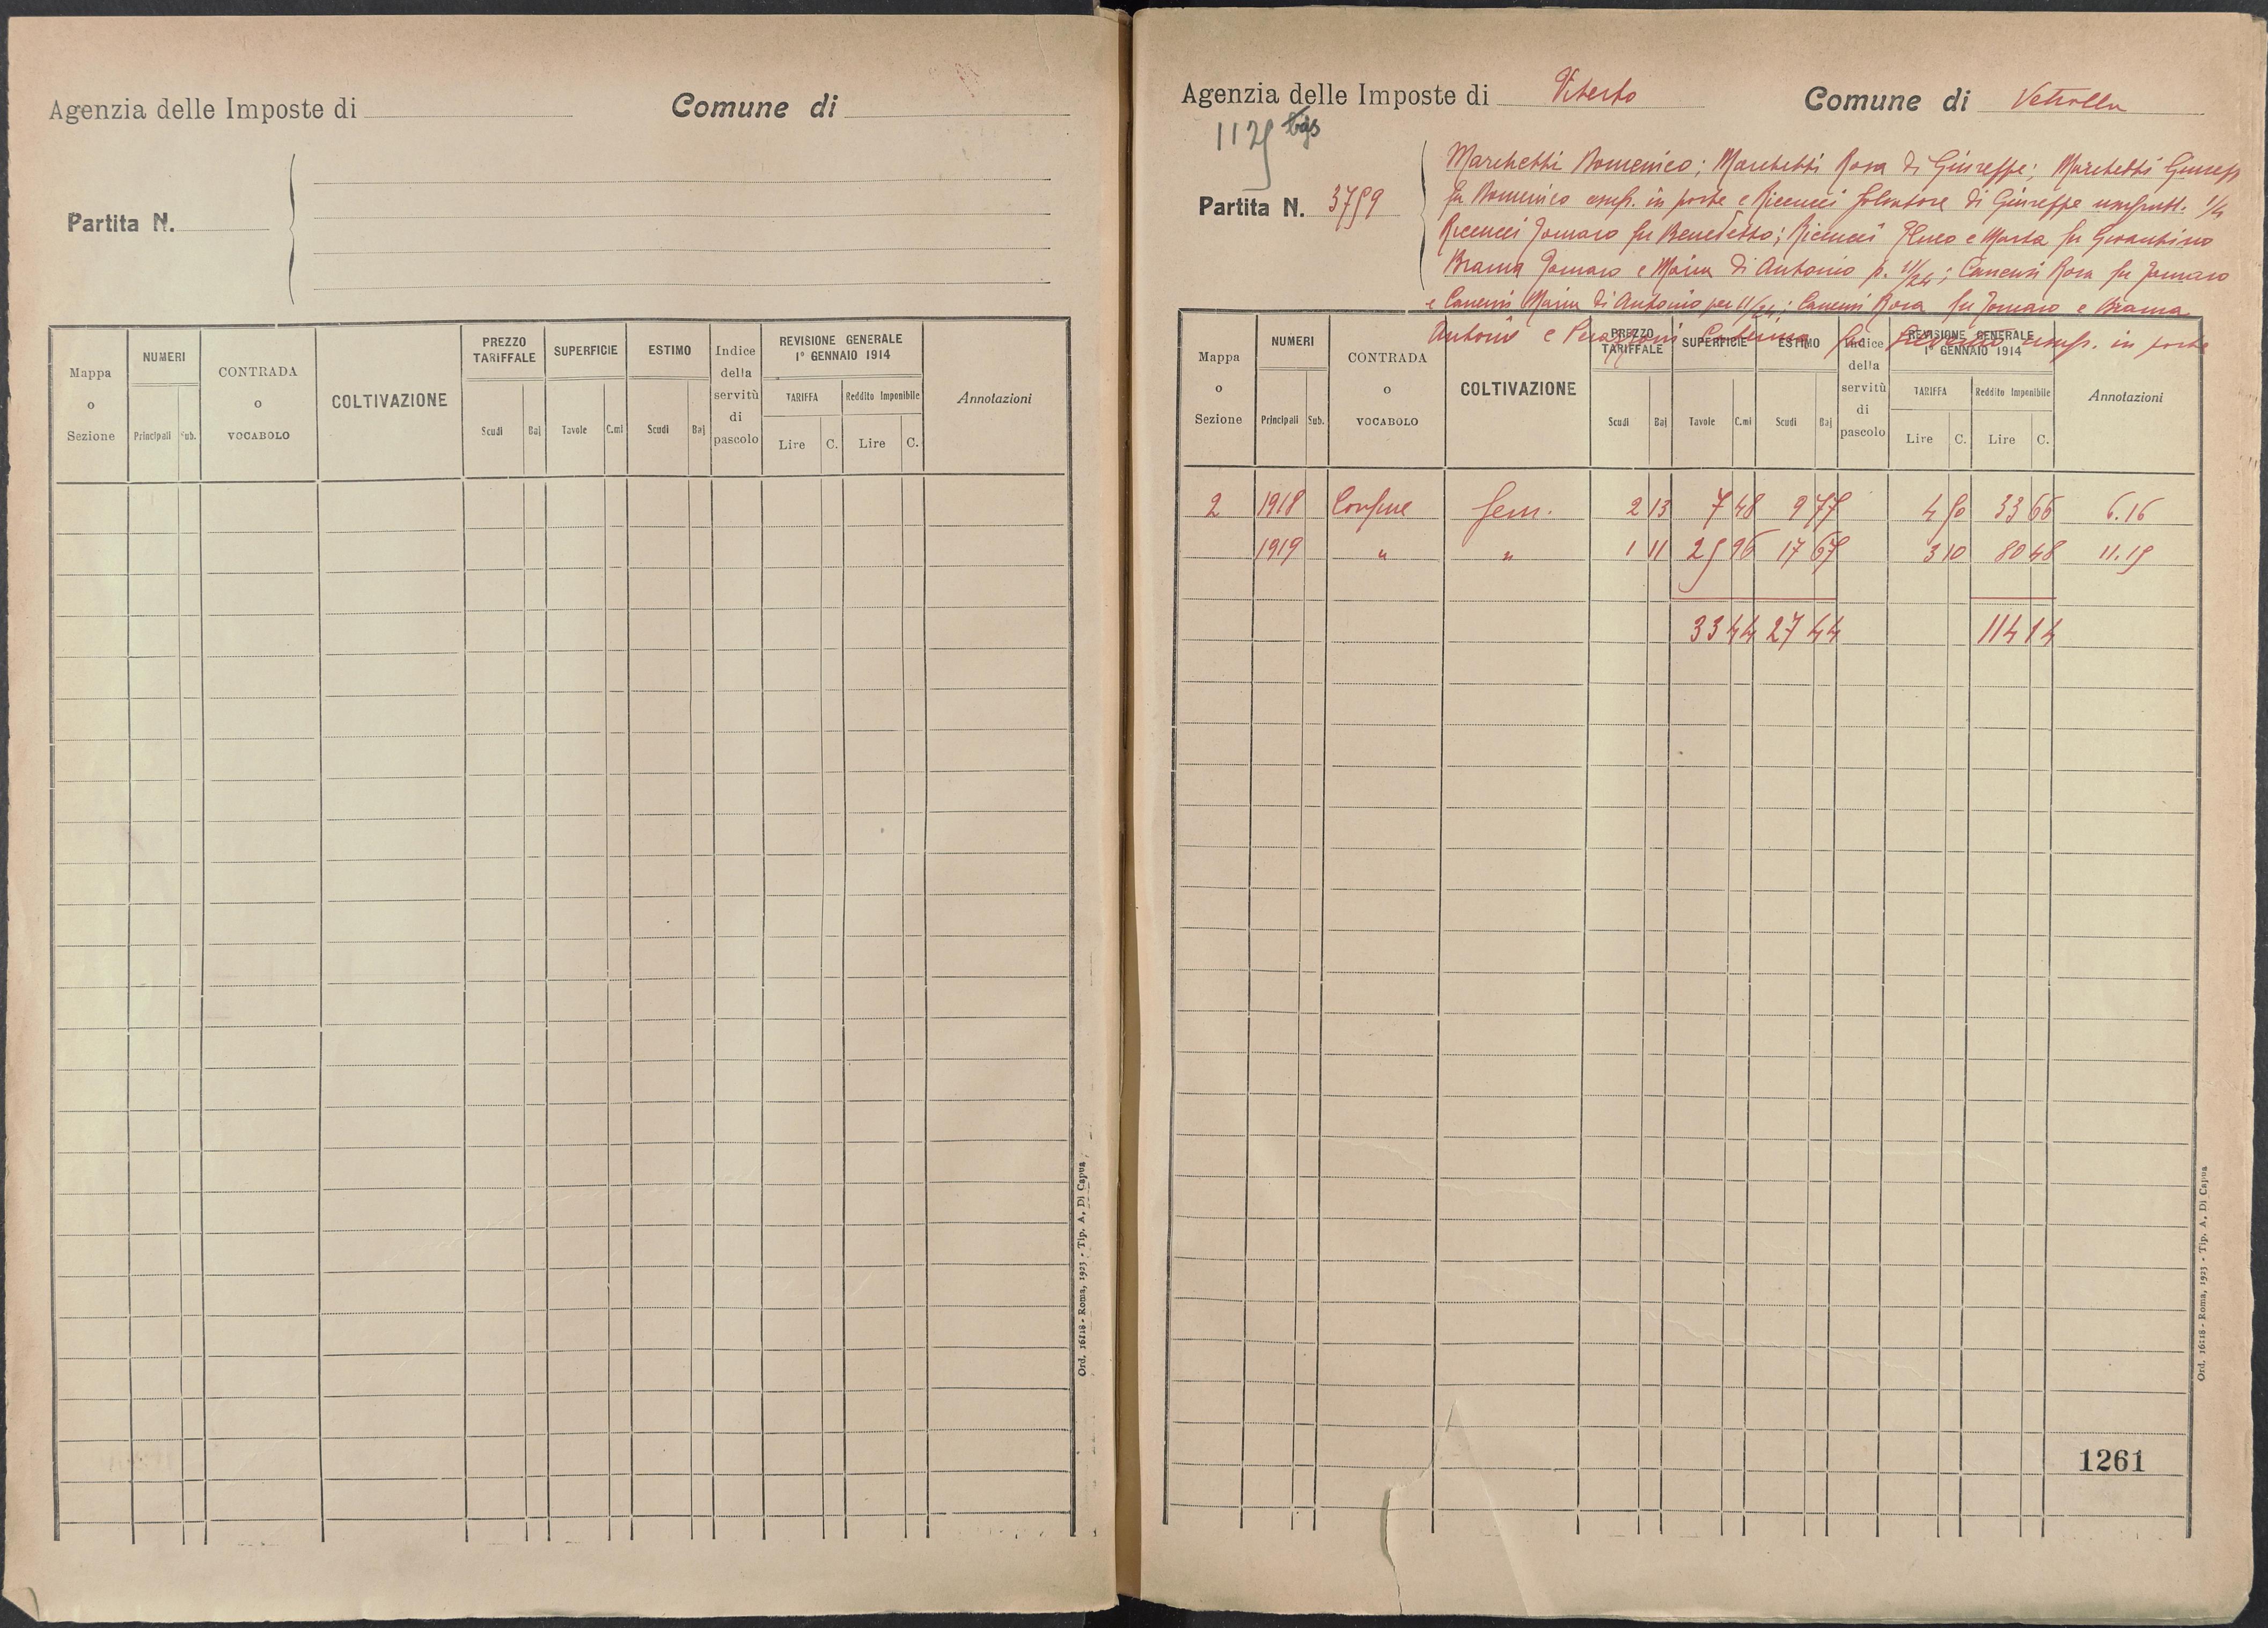 Agenzia delle Imposte di
Comune di
Partita N.
Mappa o Sezione
NUMERI
Principali
Sub.
CONTRADA o VOCABOLO
COLTIVAZIONE
PREZZO TARIFFALE
Scudi
Baj
SUPERFICIE
Tavole
C.mi
ESTIMO
Scudi
Baj
Indice della servitù di pascolo
REVISIONE GENERALE
1° GENNAIO 1914
TARIFFA
Lire
C.
Reddito Imponibile
Lire
C.
Annotazioni
Ord. 16118 - Roma, 1923 - Tip. A. Di Capua
Agenzia delle Imposte di Viterbo
Comune di Vetralla
1125 bis
Partita N. 3759
Marchetti Domenico; Marchetti Rosa di Giuseppe; Marchetti Giusep
fu Domenico usuf. in parte e Ricucci Salvatore di Giuseppe usufrutt. 1/4
Ricucci fu Benedetto; Ricucci e Marta fu
Brama e Maria di Antonio p. 11/24; Canensi Rosa fu
e Canensi Maria di Antonio per 11/24; Canensi Rosa fu e Brama
Antonio e Caterina fu usuf. in parte
Mappa o Sezione
NUMERI
Principali
Sub.
CONTRADA o VOCABOLO
COLTIVAZIONE
PREZZO TARIFFALE
Scudi
Baj
SUPERFICIE
Tavole
C.mi
ESTIMO
Scudi
Baj
Indice della servitù di pascolo
REVISIONE GENERALE
1° GENNAIO 1914
TARIFFA
Lire
C.
Reddito Imponibile
Lire
C.
Annotazioni
2 1918 Confine Sem. 2 13 7 48 9 77 4 50 33 66 6.16
1919 " " 1 11 25 96 17 67 3 10 80 48 11.15
33 44 27 44 114 14
1261
Ord. 16118 - Roma, 1923 - Tip. A. Di Capua